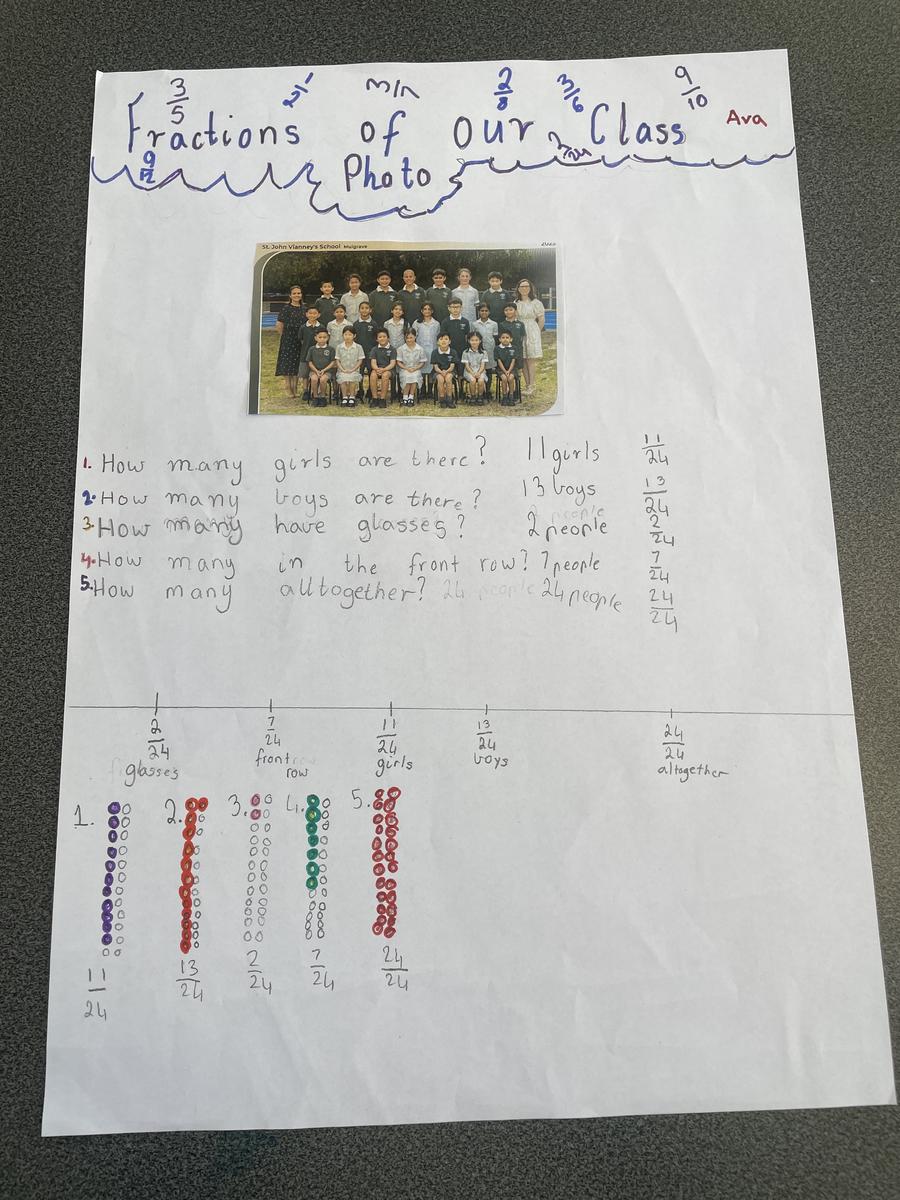 3/5 2/1 m/n 2/8 3/6 9/10
Fractions of Our Class Ava
9/12 Photo
St. John Vianney's School Mulgrave
1. How many girls are there? 11 girls 11/24
2. How many boys are there? 13 boys 13/24
3. How many have glasses? 2 people 2/24
4. How many in the front row? 7 people 7/24
5. How many alltogether? 24 people 24 people 24/24
2/24 7/24 11/24 13/24 24/24
glasses front row girls boys altogether
1. 2. 3. 4. 5.
11/24 13/24 2/24 7/24 24/24